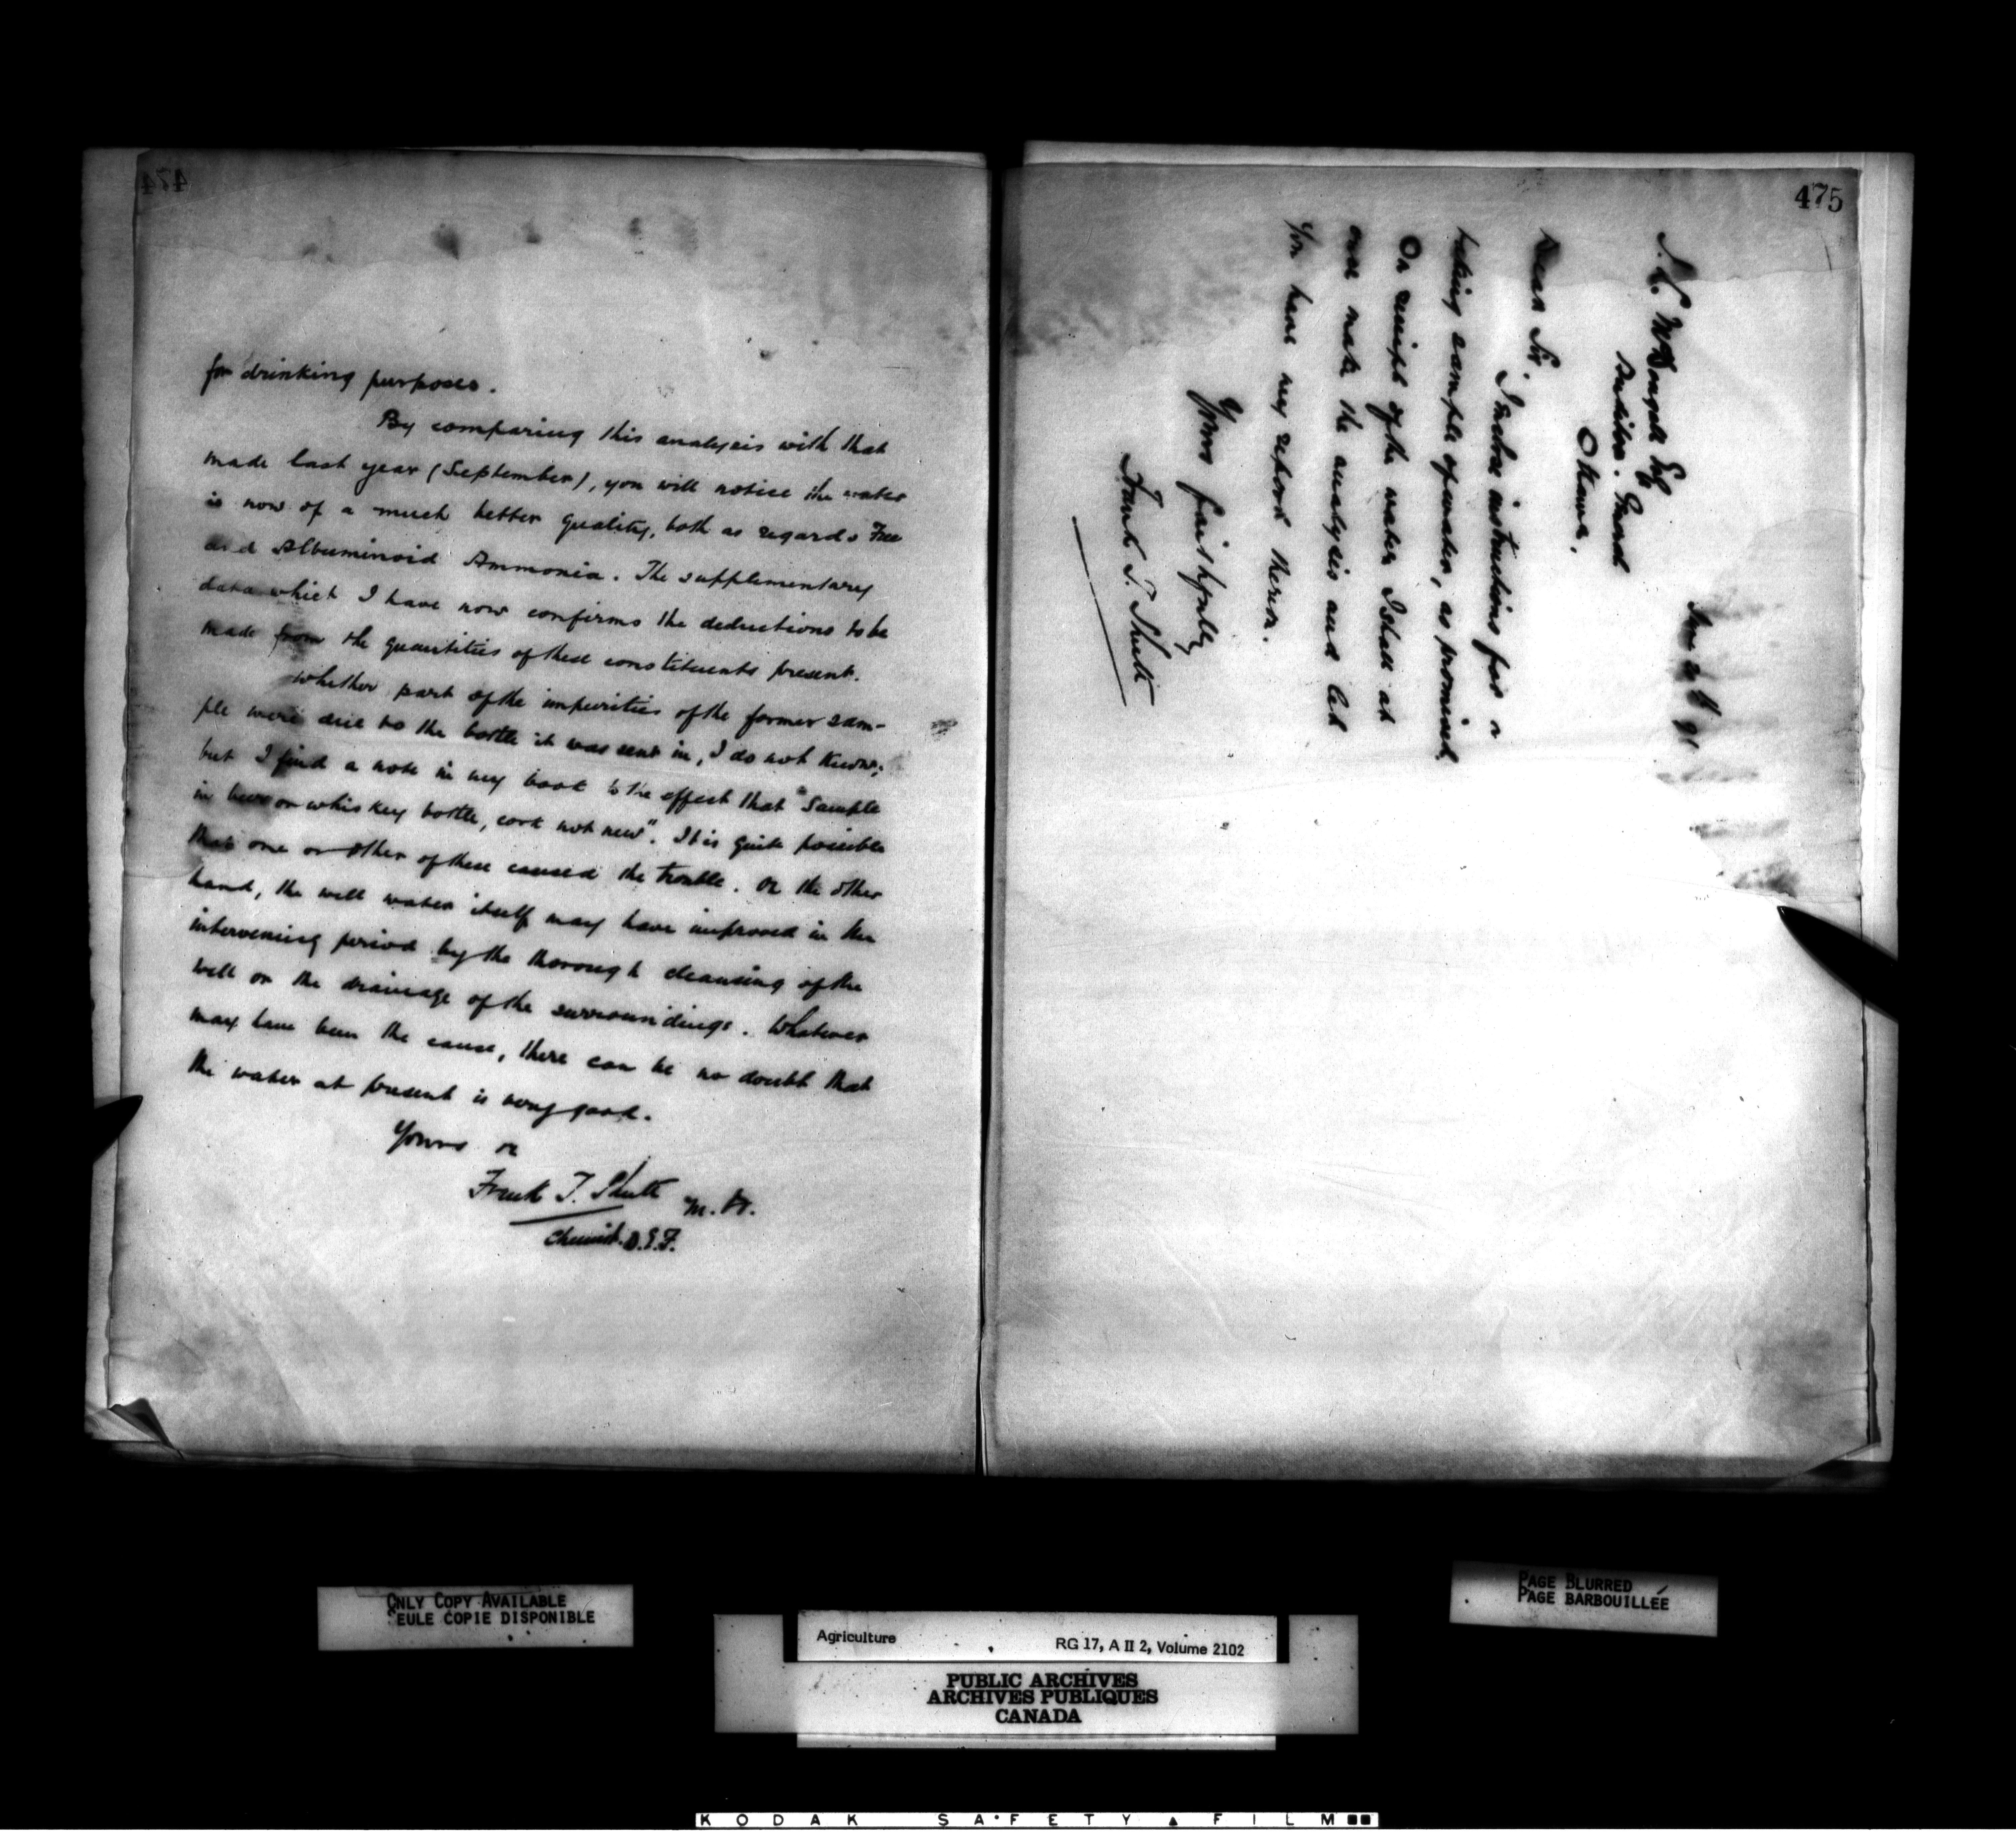 474
for drinking purposes.
By comparing this analysis with that
made last year (September), you will notice the water
is now of a much better quality, both as regards Free
and Albuminoid Ammonia. The supplementary
data which I have now confirms the deductions to be
made from the quantities of these constituents present.
Whether part of the impurities of the former sam-
ple were due to the bottle it was sent in, I do not know;
but I find a note in my book to the effect that "Sample
in beer or whiskey bottle, cork not new". It is quite possible
that one or other of these caused the trouble. On the other
hand, the well water itself may have improved in the
intervening period by the thorough cleansing of the
well or the drainage of the surroundings. Whatever
may have been the cause, there can be no doubt that
the water at present is very good.
Yours
Frank T. Shutt M.A.
Chemist. D.E.F.
475
91
J. L. McDougall Esq
Auditor.
Ottawa.
Dear Sir,
I enclose instructions for a
taking sample of water, as promised.
On receipt of the water I shall at
once make the analysis and let
you have my report thereon.
Yours faithfully
Frank T. Shutt
ONLY COPY AVAILABLE
SEULE COPIE DISPONIBLE
PAGE BLURRED
PAGE BARBOUILLÉE
Agriculture RG 17, A II 2, Volume 2102
PUBLIC ARCHIVES
ARCHIVES PUBLIQUES
CANADA
KODAK SAFETY FILM